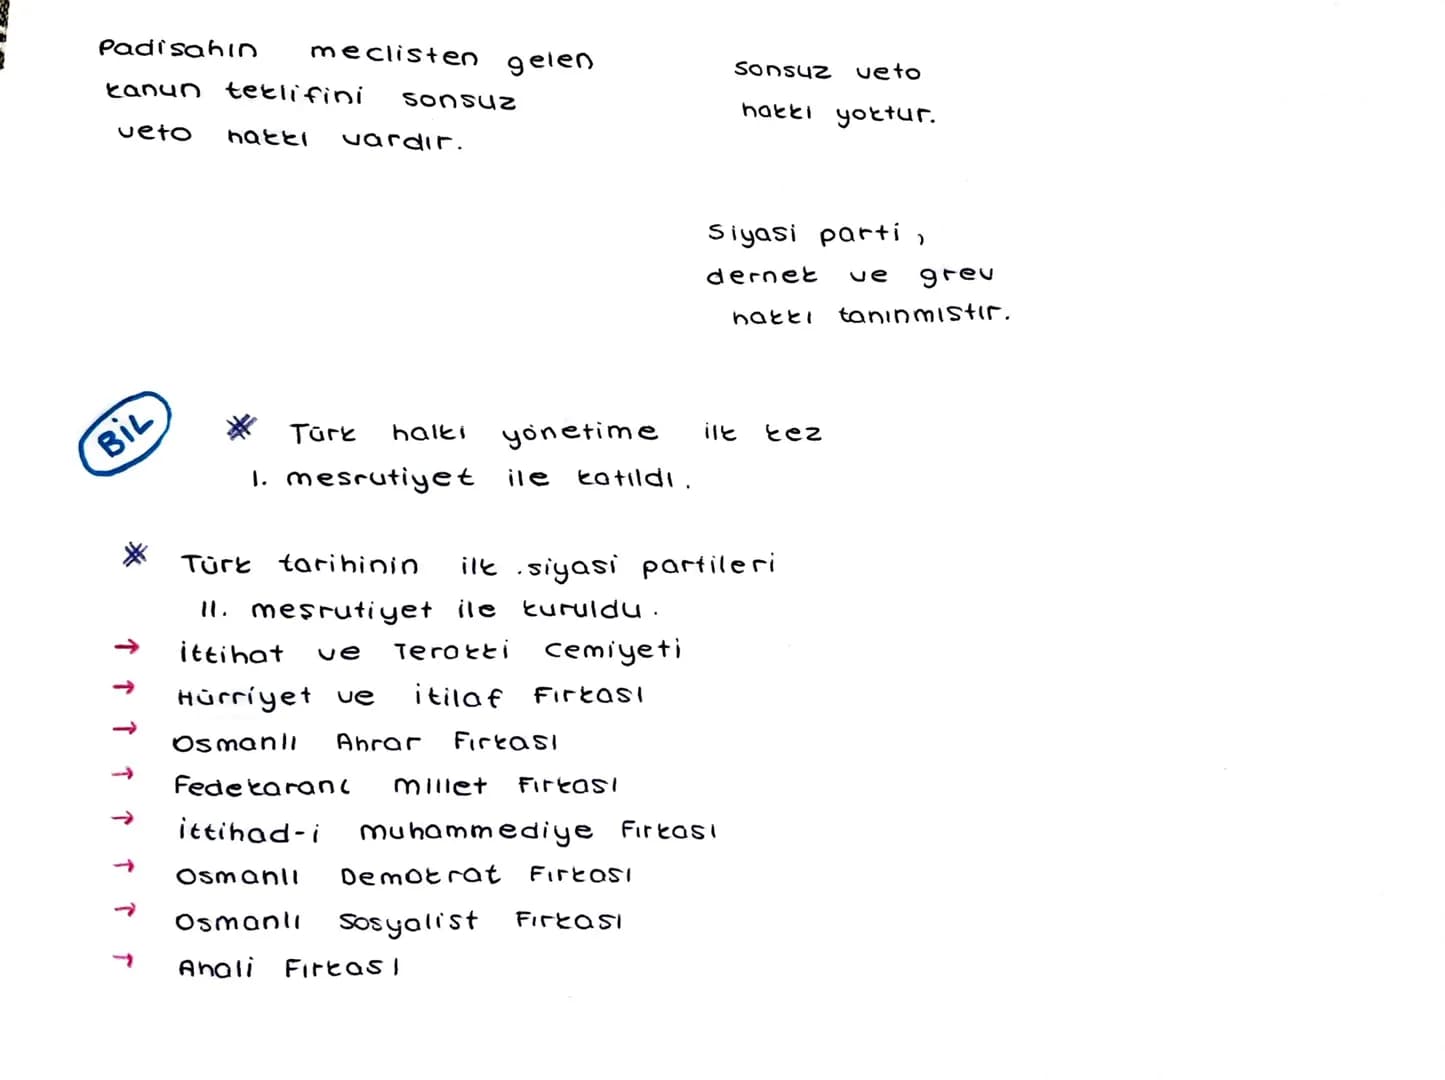 Padisahın meclisten gelen
kanun teklifini sonsuz
veto hakkı vardır.
sonsuz veto
hakkı yoktur.
Siyasi parti,
dernek ve grev
hakkı tanınmıstır.
BİL
* Türk halkı yönetime ilk kez
I. mesrutiyet ile katıldı.
* Türk tarihinin ilk siyasi partileri
II. meşrutiyet ile kuruldu.
→ İttihat ve Terakki Cemiyeti
→ Hürriyet ve itilaf Fırkası
→ Osmanlı Ahrar Fırkası
→ Fedekaranı millet Fırkası
→ İttihad-i muhammediye Fırkası
→ Osmanlı Demokrat Fırkası
→ Osmanlı Sosyalist Fırkası
→ Ahali Fırkası